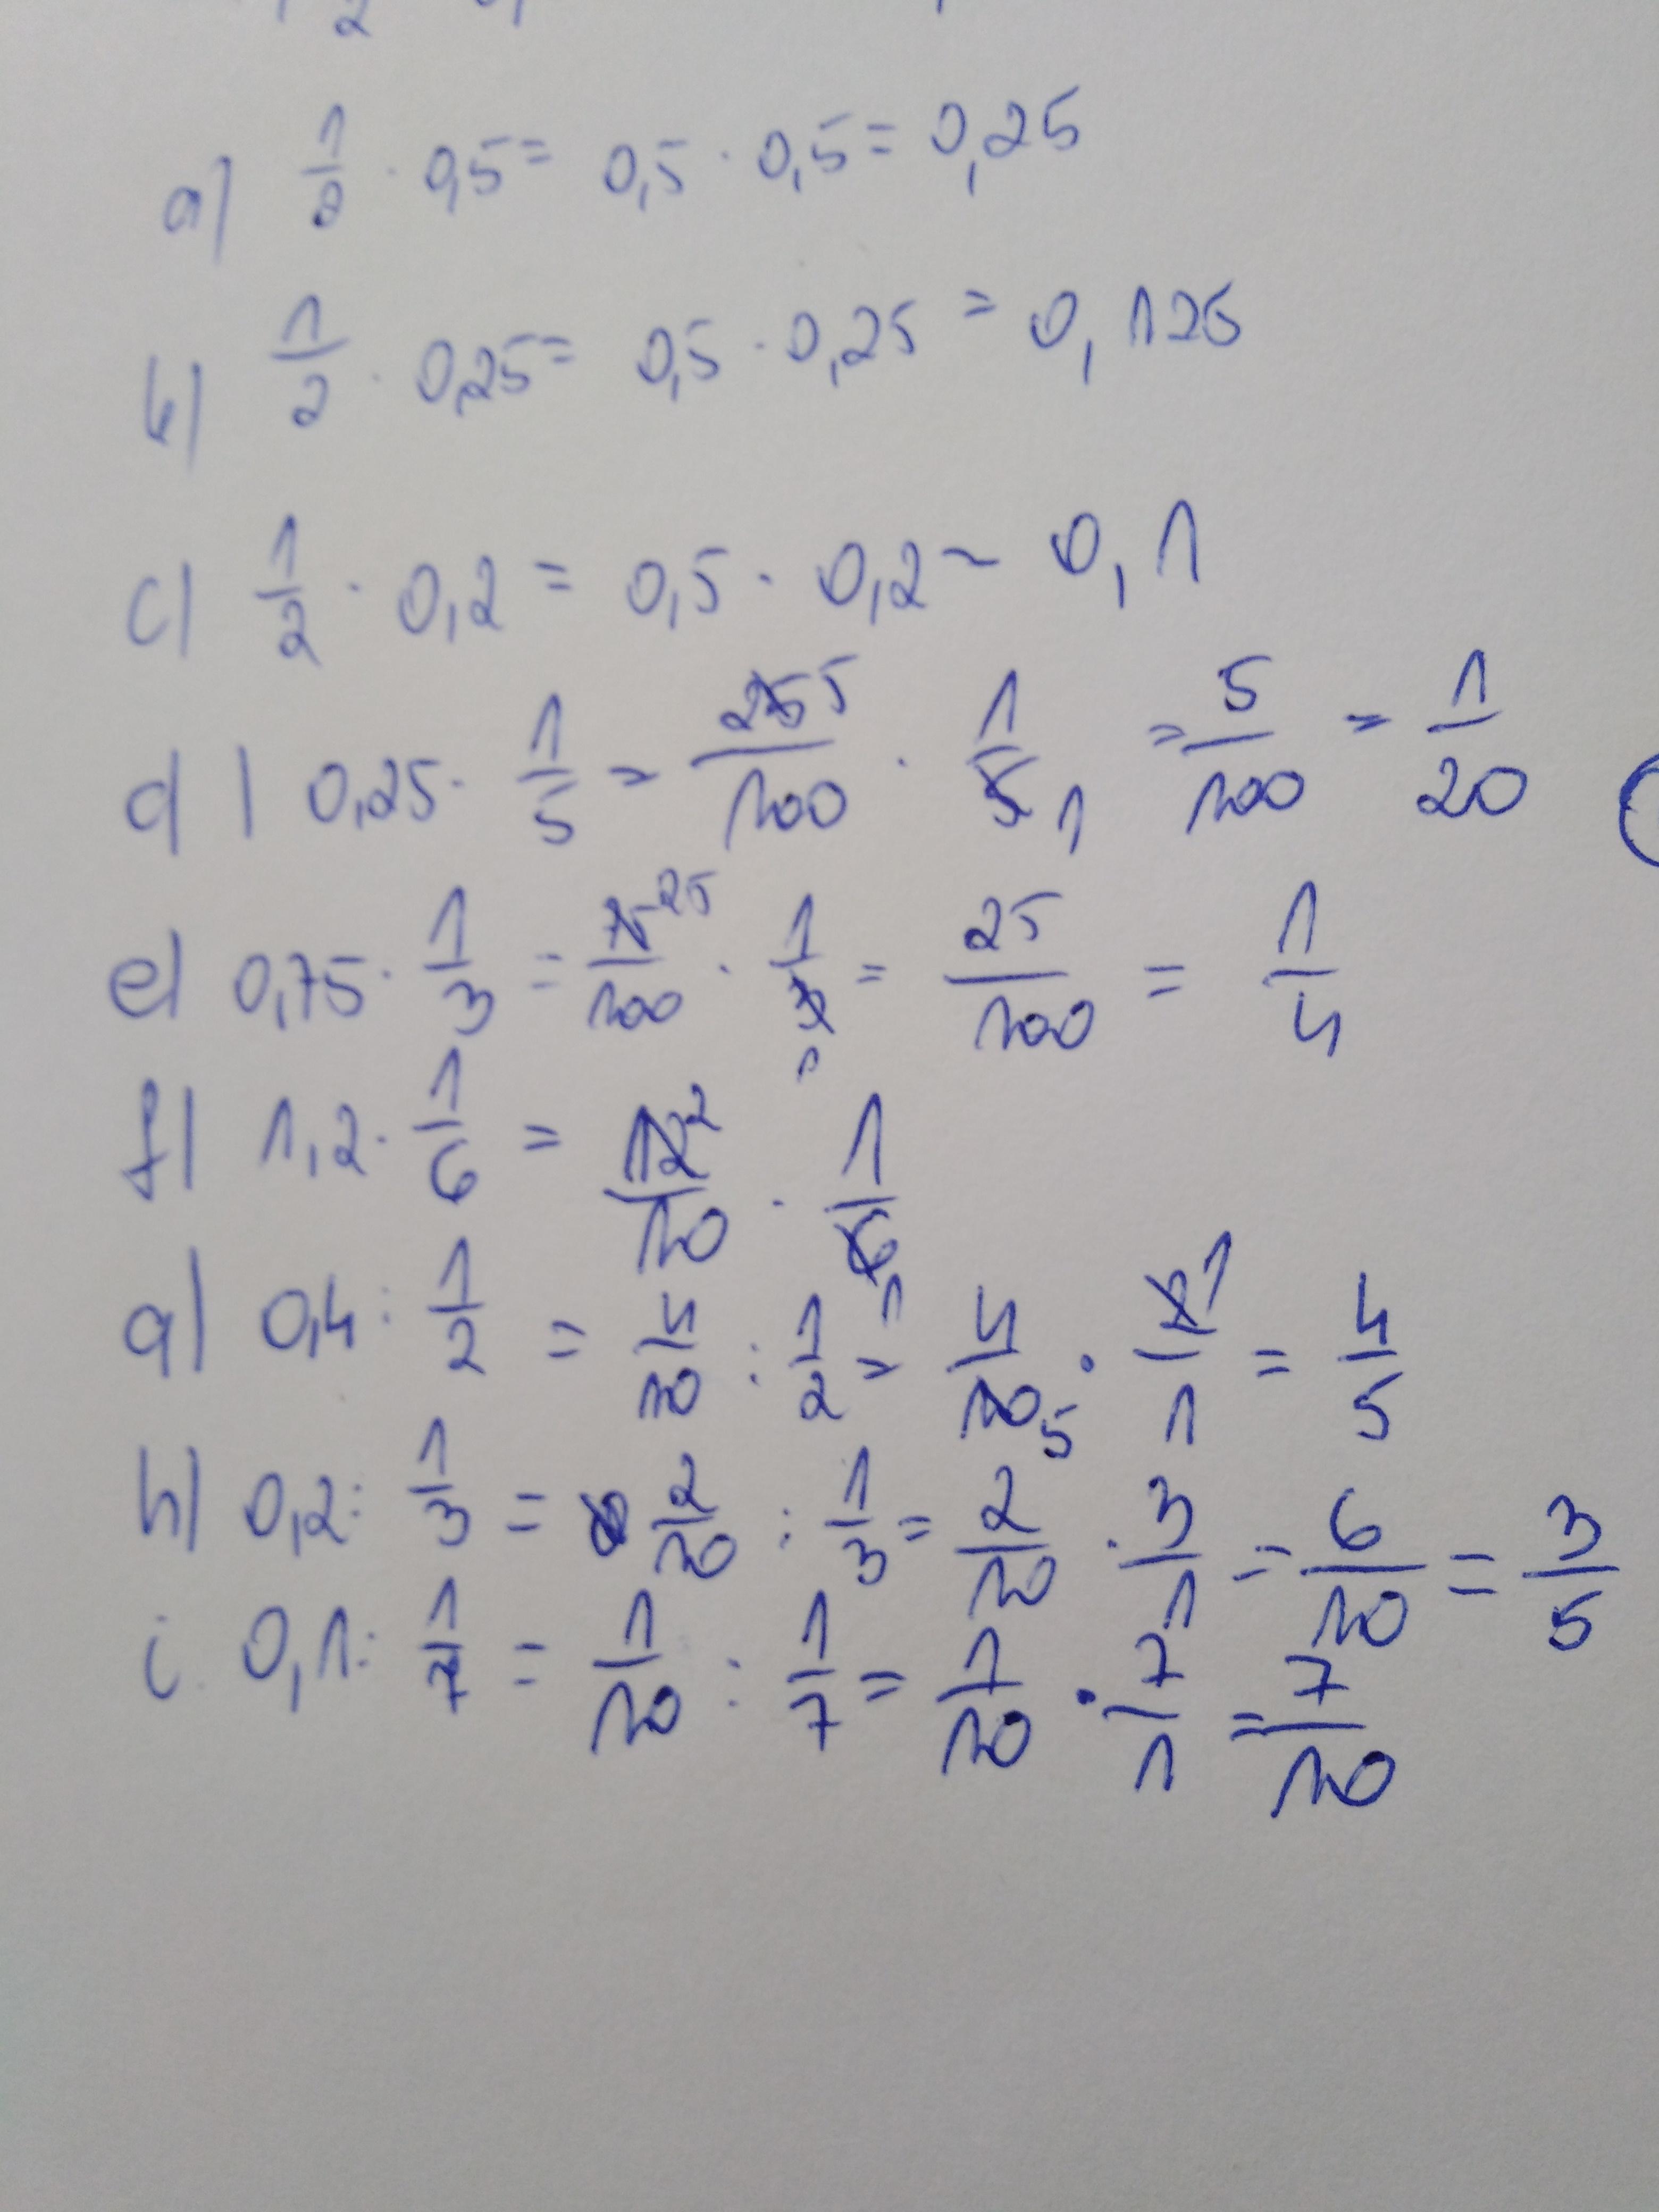 a) 1/2 · 0,5 = 0,5 · 0,5 = 0,25
b) 1/2 · 0,25 = 0,5 · 0,25 = 0,125
c) 1/2 · 0,2 = 0,5 · 0,2 = 0,1
d) 0,25 · 1/5 = 25 5/100 · 1/5 1 = 5/100 = 1/20
e) 0,75 · 1/3 = 75 25/100 · 1/3 1 = 25/100 = 1/4
f) 1,2 · 1/6 = 12 2/10 · 1/6 1
g) 0,4 : 1/2 = 4/10 : 1/2 = 4/10 5 · 2 1/1 = 4/5
h) 0,2 : 1/3 = 2/10 : 1/3 = 2/10 · 3/1 = 6/10 = 3/5
i. 0,1 : 1/7 = 1/10 : 1/7 = 1/10 · 7/1 = 7/10